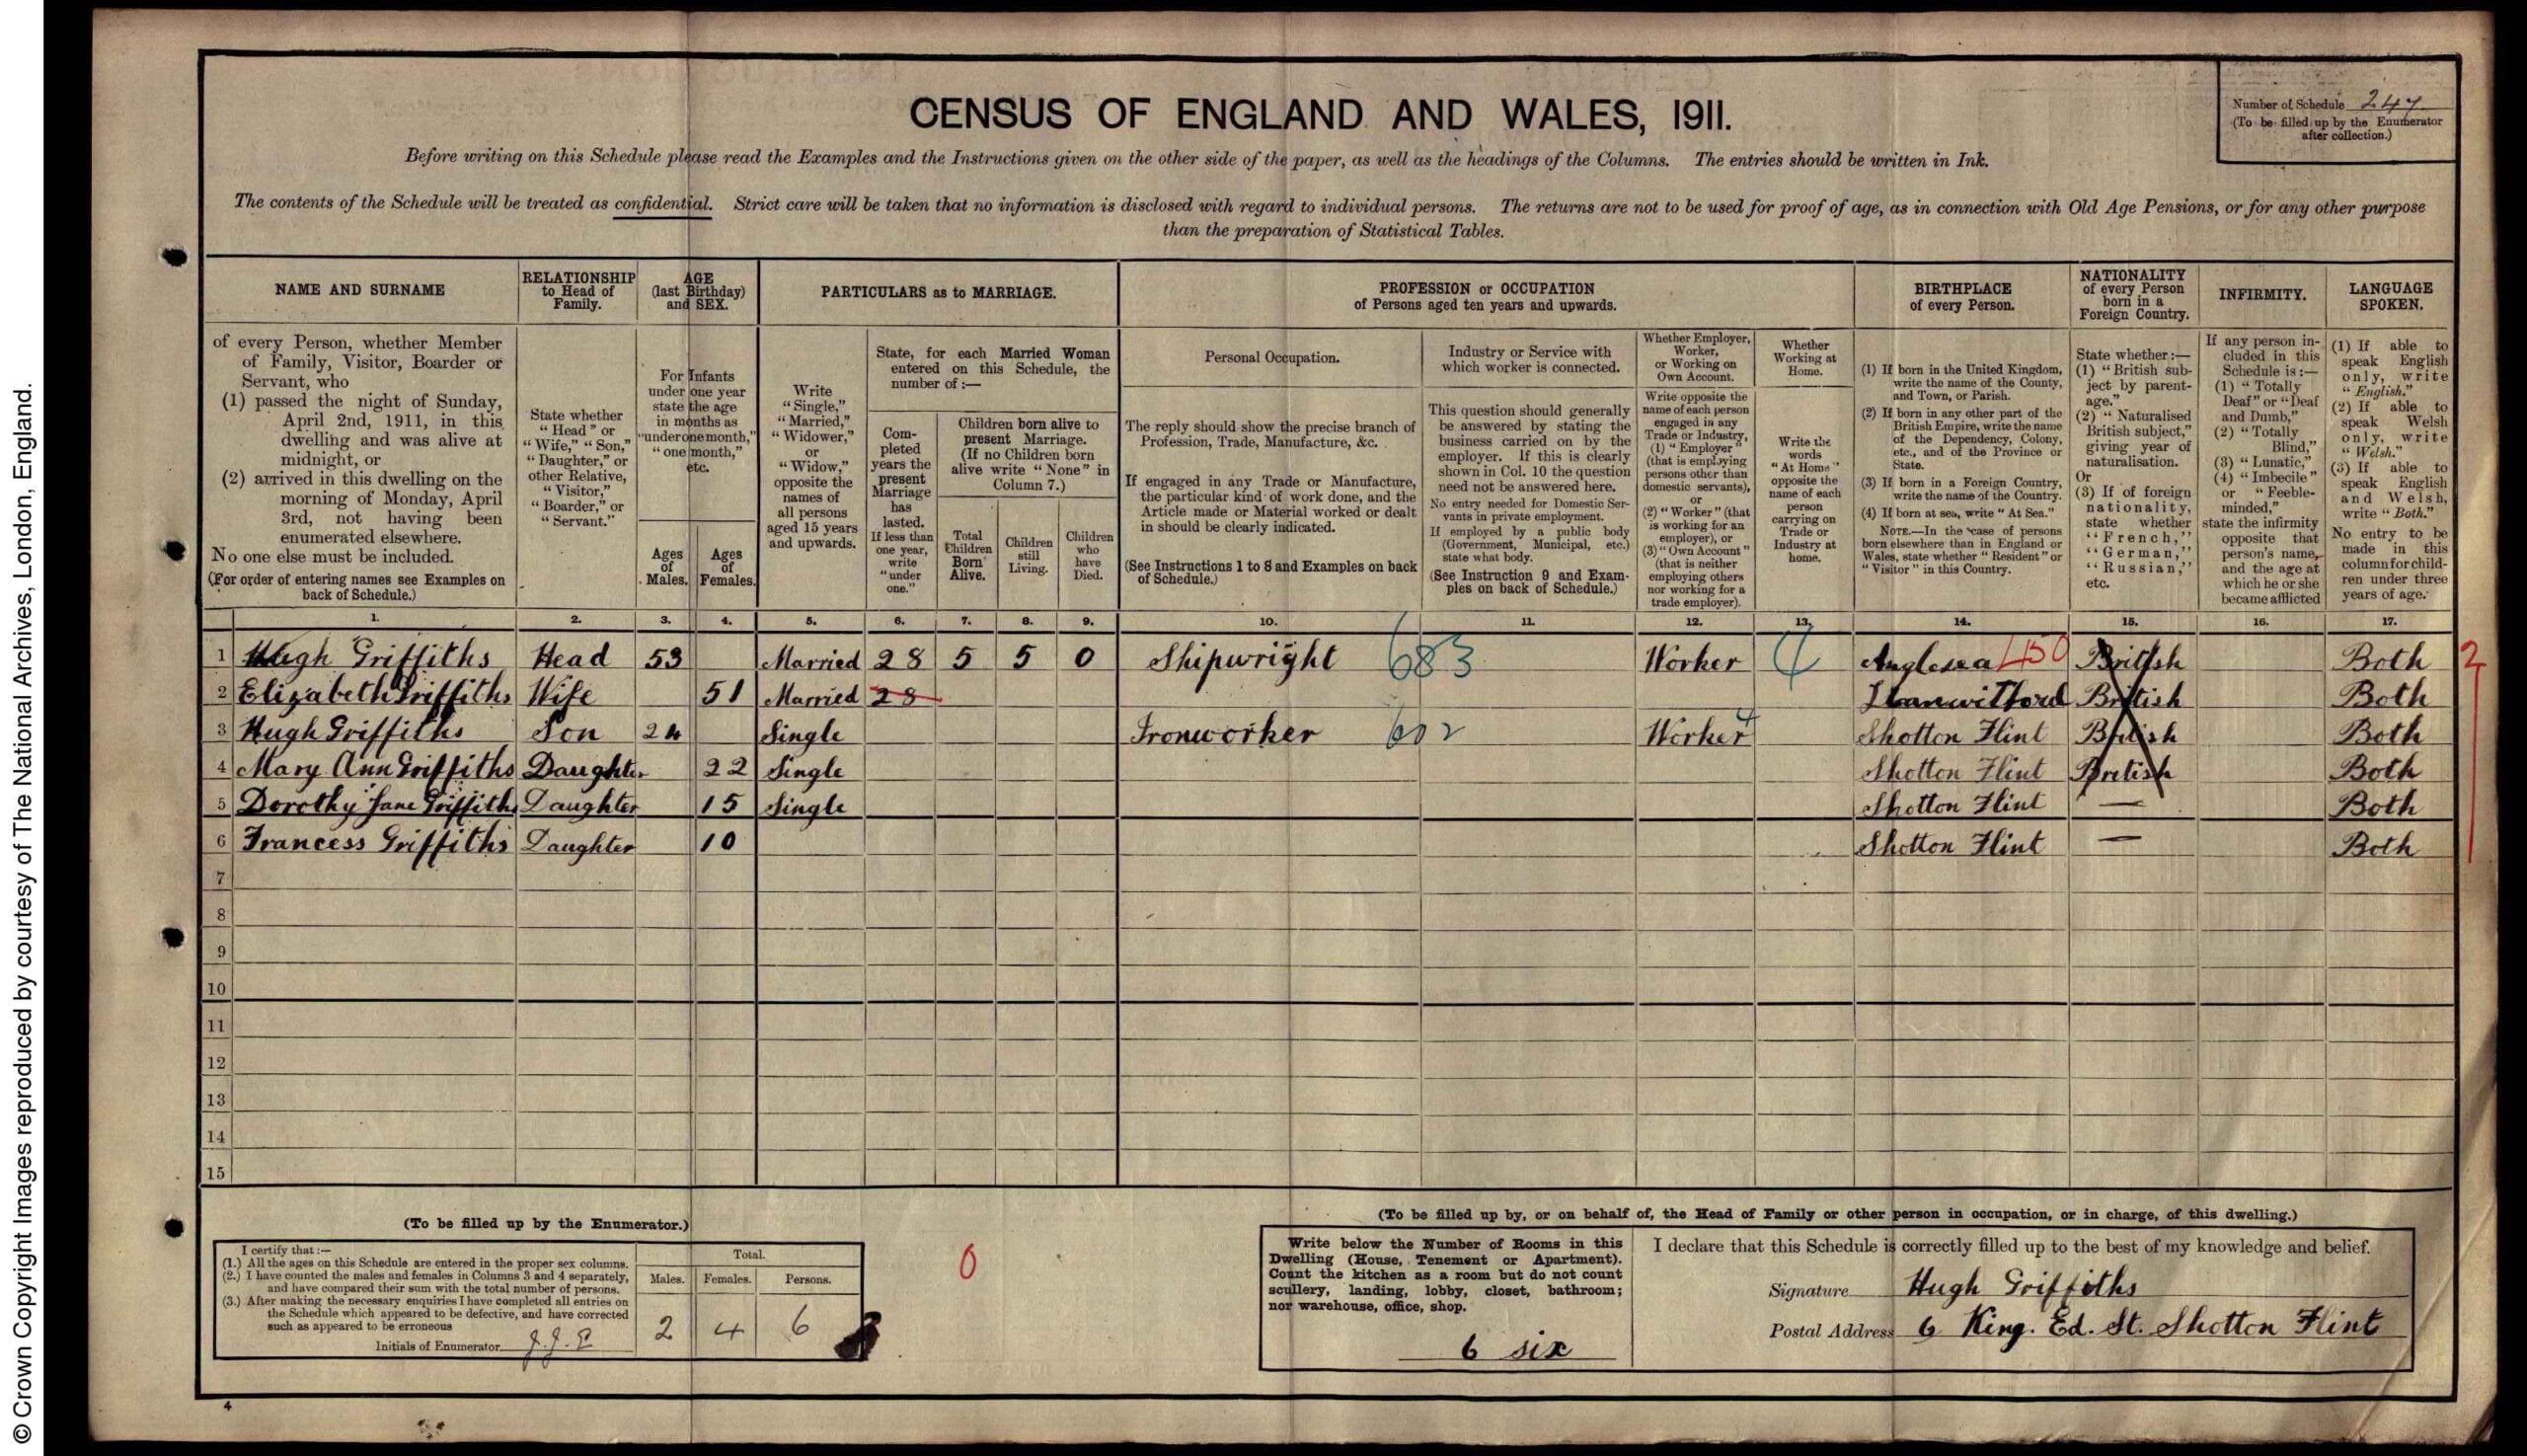 © Crown Copyright Images reproduced by courtesy of The National Archives, London, England.
CENSUS OF ENGLAND AND WALES, 1911.
Number of Schedule 247
(To be filled up by the Enumerator
after collection.)
Before writing on this Schedule please read the Examples and the Instructions given on the other side of the paper, as well as the headings of the Columns. The entries should be written in Ink.
The contents of the Schedule will be treated as confidential. Strict care will be taken that no information is disclosed with regard to individual persons. The returns are not to be used for proof of age, as in connection with Old Age Pensions, or for any other purpose
than the preparation of Statistical Tables.
NAME AND SURNAME
RELATIONSHIP
to Head of
Family.
AGE
(last Birthday)
and SEX.
PARTICULARS as to MARRIAGE.
PROFESSION or OCCUPATION
of Persons aged ten years and upwards.
BIRTHPLACE
of every Person.
NATIONALITY
of every Person
born in a
Foreign Country.
INFIRMITY.
LANGUAGE
SPOKEN.
of every Person, whether Member
of Family, Visitor, Boarder or
Servant, who
(1) passed the night of Sunday,
April 2nd, 1911, in this
dwelling and was alive at
midnight, or
(2) arrived in this dwelling on the
morning of Monday, April
3rd, not having been
enumerated elsewhere.
No one else must be included.
(For order of entering names see Examples on
back of Schedule.)
State whether
"Head" or
"Wife," "Son,"
"Daughter," or
other Relative,
"Visitor,"
"Boarder," or
"Servant."
For Infants
under one year
state the age
in months as
"under one month,"
"one month,"
etc.
Ages
of
Males.
Ages
of
Females.
Write
"Single,"
"Married,"
"Widower,"
or
"Widow,"
opposite the
names of
all persons
aged 15 years
and upwards.
State, for each Married Woman
entered on this Schedule, the
number of :—
Com-
pleted
years the
present
Marriage
has
lasted.
If less than
one year,
write
"under
one."
Children born alive to
present Marriage.
(If no Children born
alive write "None" in
Column 7.)
Total
Children
Born
Alive.
Children
still
Living.
Children
who
have
Died.
Personal Occupation.
The reply should show the precise branch of
Profession, Trade, Manufacture, &c.
If engaged in any Trade or Manufacture,
the particular kind of work done, and the
Article made or Material worked or dealt
in should be clearly indicated.
(See Instructions 1 to 8 and Examples on back
of Schedule.)
Industry or Service with
which worker is connected.
This question should generally
be answered by stating the
business carried on by the
employer. If this is clearly
shown in Col. 10 the question
need not be answered here.
No entry needed for Domestic Ser-
vants in private employment.
If employed by a public body
(Government, Municipal, etc.)
state what body.
(See Instruction 9 and Exam-
ples on back of Schedule.)
Whether Employer,
Worker,
or Working on
Own Account.
Write opposite the
name of each person
engaged in any
Trade or Industry,
(1) "Employer"
(that is employing
persons other than
domestic servants),
or
(2) "Worker" (that
is working for an
employer), or
(3) "Own Account"
(that is neither
employing others
nor working for a
trade employer).
Whether
Working at
Home.
Write the
words
"At Home"
opposite the
name of each
person
carrying on
Trade or
Industry at
home.
(1) If born in the United Kingdom,
write the name of the County,
and Town, or Parish.
(2) If born in any other part of the
British Empire, write the name
of the Dependency, Colony,
etc., and of the Province or
State.
(3) If born in a Foreign Country,
write the name of the Country.
(4) If born at sea, write "At Sea."
NOTE.—In the case of persons
born elsewhere than in England or
Wales, state whether "Resident" or
"Visitor" in this Country.
State whether :—
(1) "British sub-
ject by parent-
age."
(2) "Naturalised
British subject,"
giving year of
naturalisation.
Or
(3) If of foreign
nationality,
state whether
"French,"
"German,"
"Russian,"
etc.
If any person in-
cluded in this
Schedule is :—
(1) "Totally
Deaf" or "Deaf
and Dumb,"
(2) "Totally
Blind,"
(3) "Lunatic,"
(4) "Imbecile"
or "Feeble-
minded,"
state the infirmity
opposite that
person's name,
and the age at
which he or she
became afflicted
(1) If able to
speak English
only, write
"English."
(2) If able to
speak Welsh
only, write
"Welsh."
(3) If able to
speak English
and Welsh,
write "Both."
No entry to be
made in this
column for child-
ren under three
years of age.
1. 2. 3. 4. 5. 6. 7. 8. 9. 10. 11. 12. 13. 14. 15. 16. 17.
1 Hugh Griffiths Head 53 Married 28 5 5 0 Shipwright 683 Worker Anglesea 450 British Both 2
2 Elizabeth Griffiths Wife 51 Married 28 British Both
3 Hugh Griffiths Son 24 Single Ironworker 602 Worker 4 Shotton Flint British Both
4 Mary Ann Griffiths Daughter 22 Single Shotton Flint British Both
5 Dorothy Jane Griffiths Daughter 15 Single Shotton Flint — Both
6 Francess Griffiths Daughter 10 Shotton Flint — Both
7
8
9
10
11
12
13
14
15
(To be filled up by the Enumerator.)
I certify that :—
(1.) All the ages on this Schedule are entered in the proper sex columns.
(2.) I have counted the males and females in Columns 3 and 4 separately,
and have compared their sum with the total number of persons.
(3.) After making the necessary enquiries I have completed all entries on
the Schedule which appeared to be defective, and have corrected
such as appeared to be erroneous
Initials of Enumerator
Total.
Males. Females. Persons.
2 4 6
0
(To be filled up by, or on behalf of, the Head of Family or other person in occupation, or in charge, of this dwelling.)
Write below the Number of Rooms in this
Dwelling (House, Tenement or Apartment).
Count the kitchen as a room but do not count
scullery, landing, lobby, closet, bathroom;
nor warehouse, office, shop.
6 six
I declare that this Schedule is correctly filled up to the best of my knowledge and belief.
Signature Hugh Griffiths
Postal Address 6 King. Ed. St. Shotton Flint
4